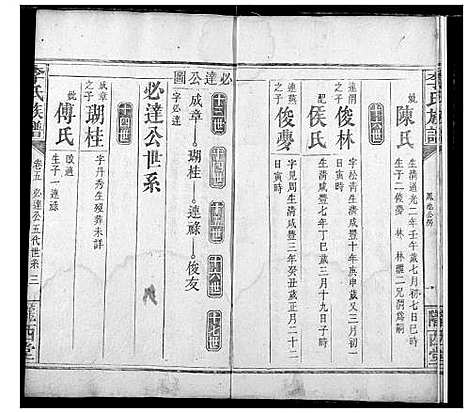 李氏族譜
鳳池公房
一
隴西堂
娶
陳氏
生清道光二年壬午歲七月初七日巳時
生子二俊夢 俊林 林繼二兄
為嗣
連
之子
俊林
字松青生清咸豐七年丁巳歲又三月初一
日寅時
配
侯氏
生清咸豐七年丁巳歲三月十九日子時
連
之子
俊夢
字見周生清咸豐三年癸丑歲二月
日寅時
必達公圖
十三世
十四世
十五世
十六世
十七世
字必達
成章
瑚桂
連祿
俊友
必達公世系
十四世
成章
之子
瑚桂
字丹秀生歿葬未詳
娶
傅氏
改適
生子 連祿
李氏族譜
卷五 必達公五代世系
三
隴西堂